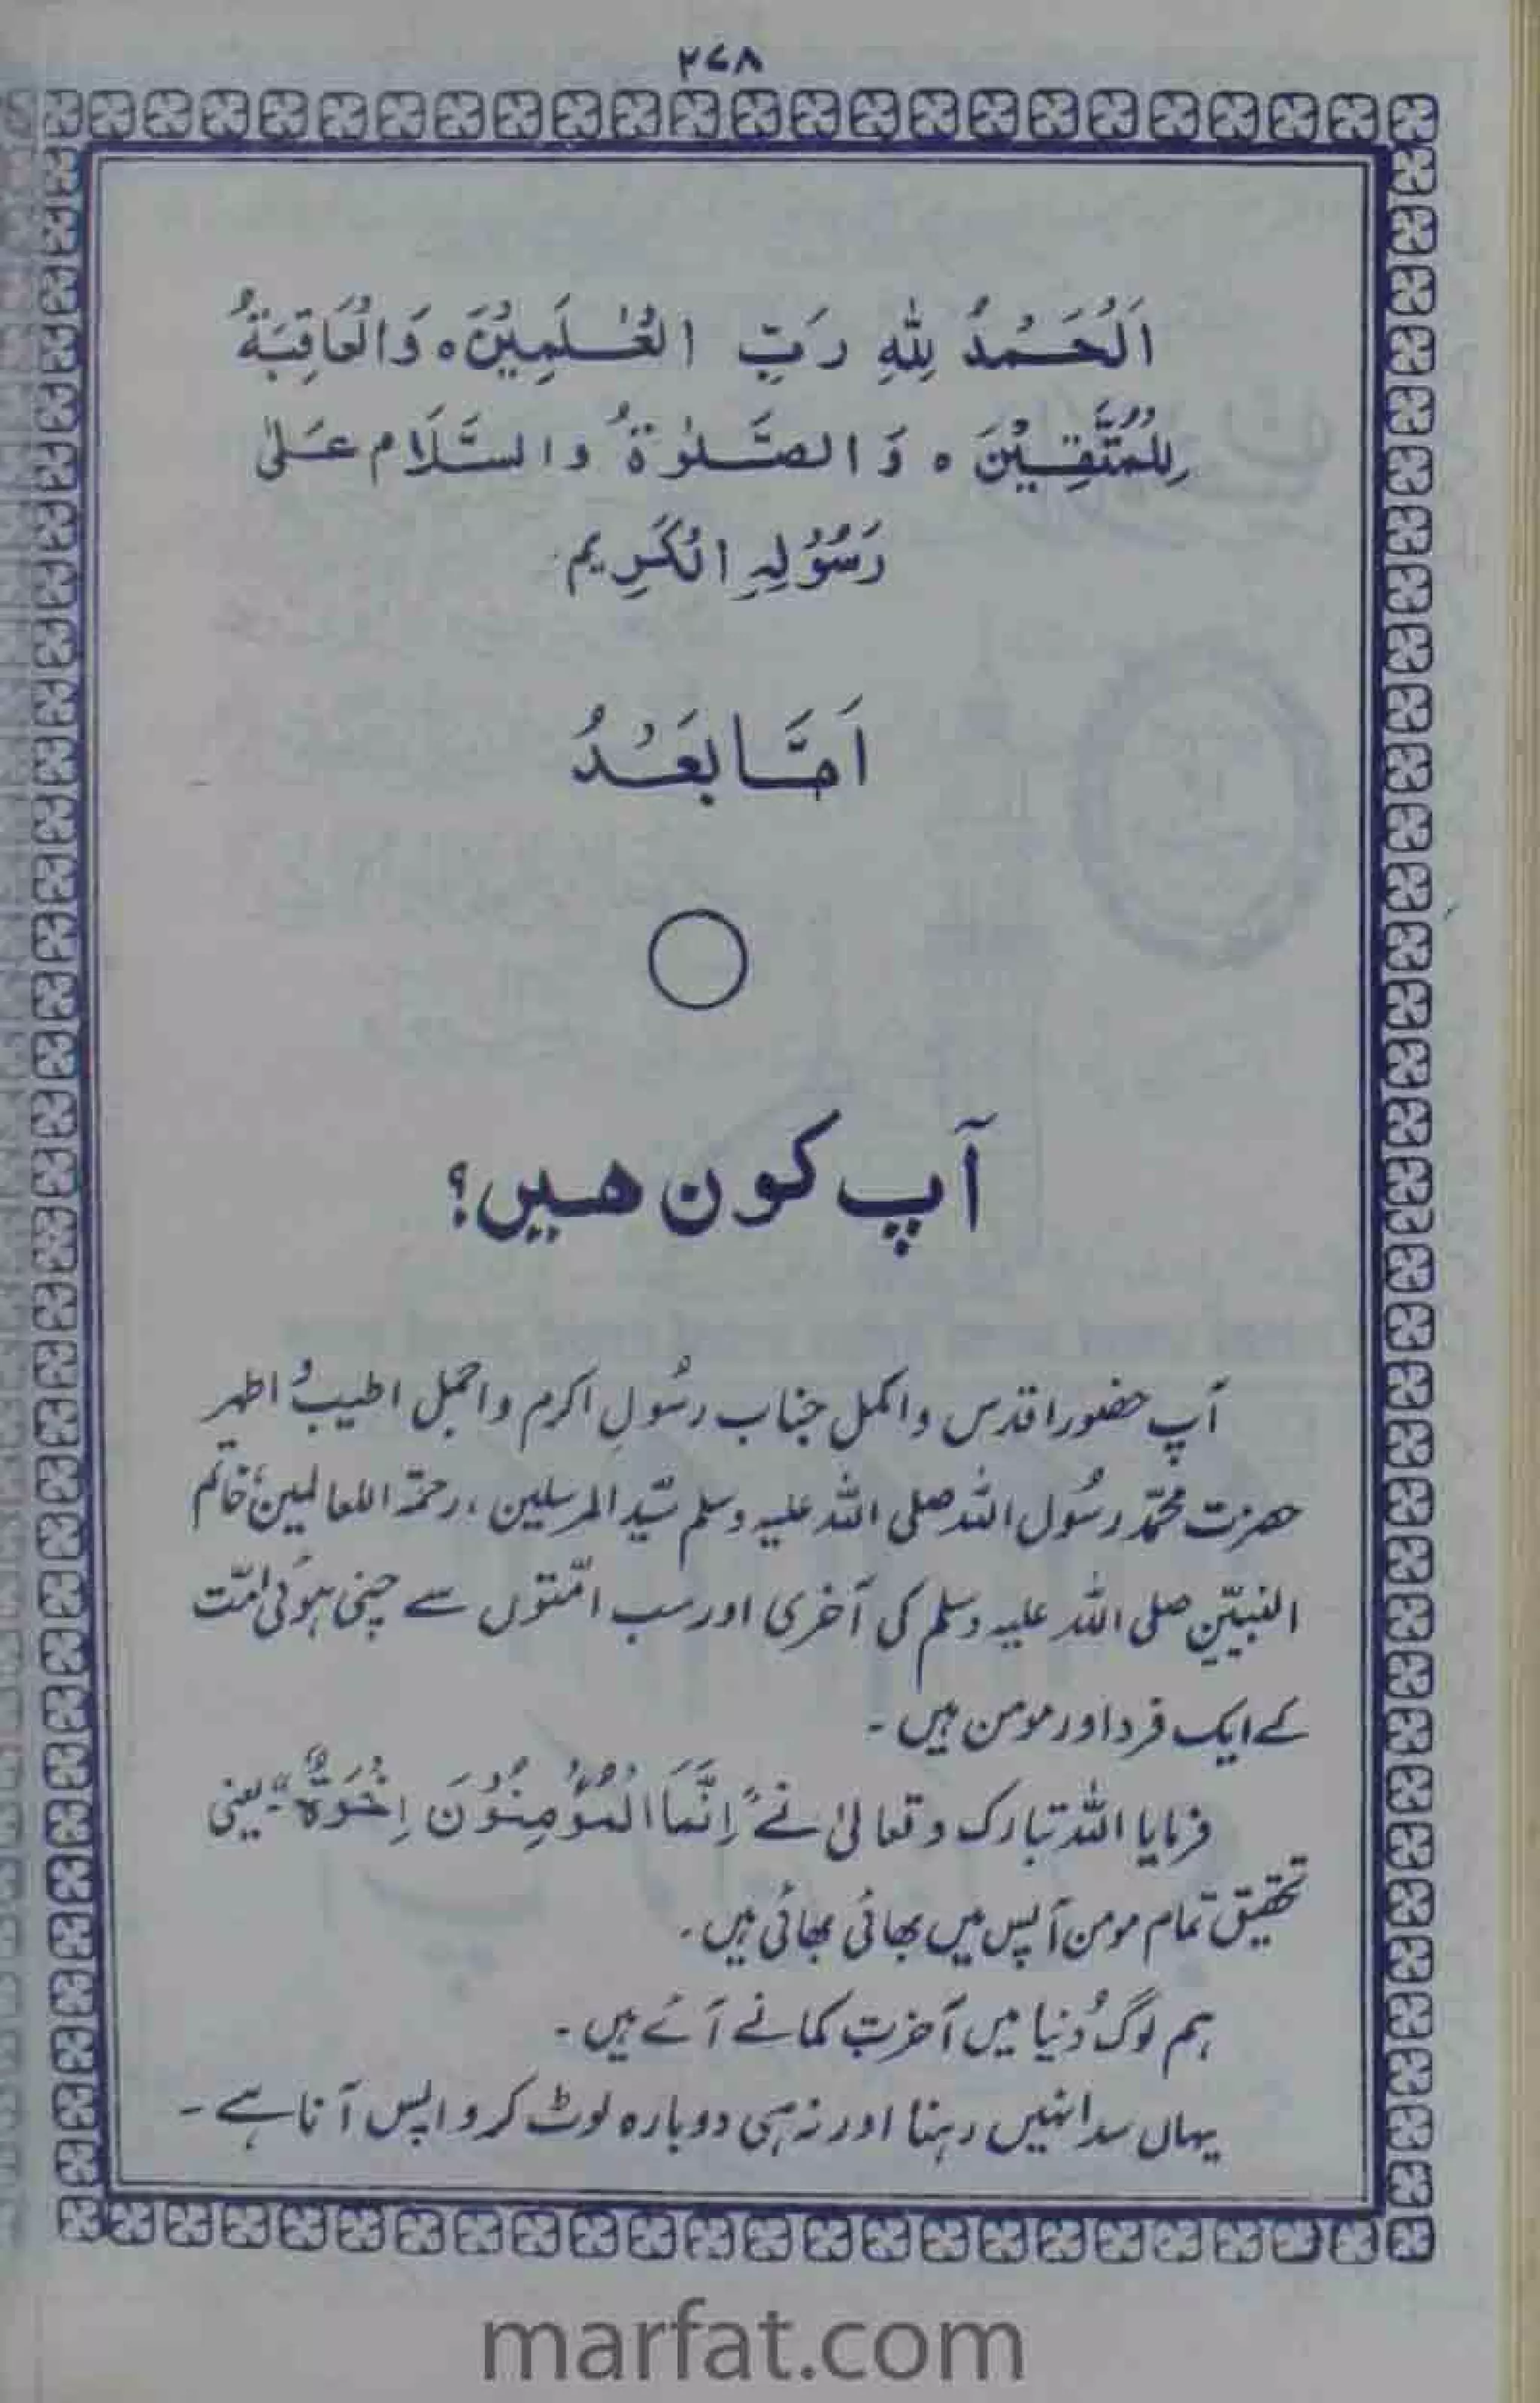 ۲۷۸
اَلْحَمْدُ لِلّٰهِ رَبِّ الْعٰلَمِيْنَ ہ وَالْعَاقِبَةُ
لِلْمُتَّقِيْنَ ہ وَالصَّلٰوةُ وَالسَّلَامُ عَلٰى
رَسُوْلِهِ الْكَرِيم
اَمَّا بَعْدُ
آپ کون ھیں؟
آپ حضور اقدس و اکمل جناب رسُولِ اکرم و اجمل اطیبُ اطہر
حضرت محمّد رسُول اللہ صلی اللہ علیہ وسلم سیّد المرسلین، رحمۃ اللعالمین، خاتم
النبیّین صلی اللہ علیہ وسلم کی آخری اور سب امّتوں سے چنی ہوئی امّت
کے ایک فرد اور مومن ہیں ۔
فرمایا اللہ تبارک و تعالیٰ نے "اِنَّمَا الْمُؤْمِنُوْنَ اِخْوَةٌ" یعنی
تحقیق تمام مومن آپس میں بھائی بھائی ہیں ۔
ہم لوگ دُنیا میں آخرت کمانے آئے ہیں ۔
یہاں سدا نہیں رہنا اور نہ ہی دوبارہ لوٹ کر واپس آنا ہے ۔
marfat.com